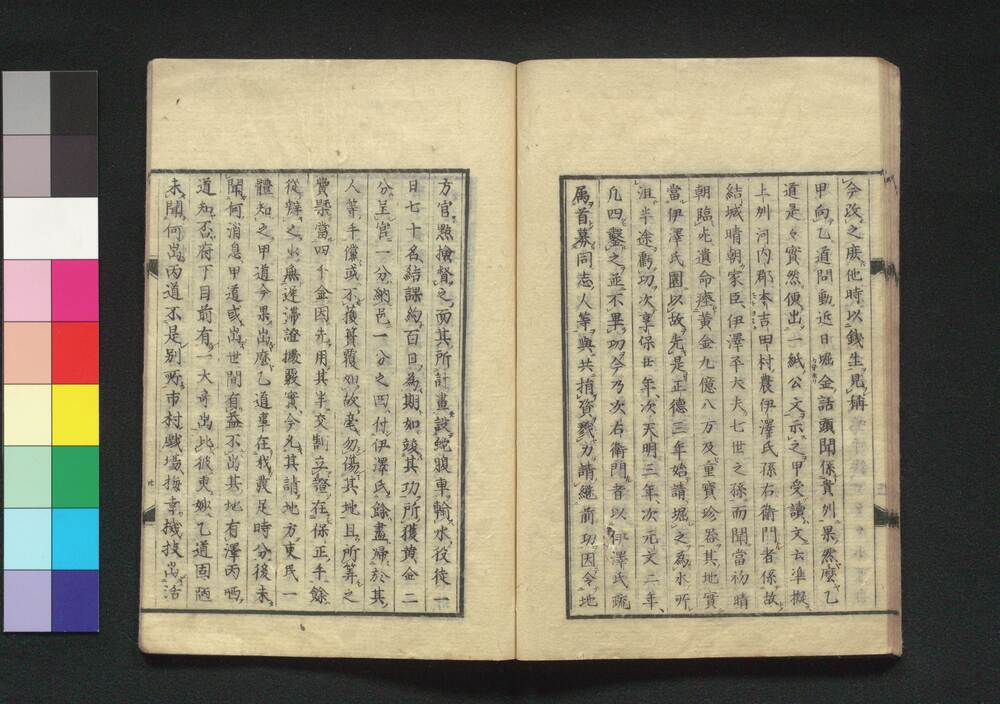 今改之庶他時以錢生見稱
甲向乙道問動近日堀金話頭聞係貴州果然麼乙
道是々實然便出一紙公文示之甲受讀文云準擬
上州河内郡本吉田村農伊澤氏孫右衛門者係故
結城晴朝家臣伊澤平大夫七世之孫而聞當初晴
朝臨死遺命瘞黄金九億八万及重寶珍器其地實
當伊澤氏園以故先是正德三年始請堀之為水所
沮半途虧功次享保廿年次天明三年次元文二年
凡四鑿之並不畢功今乃次右衛門者以伊澤氏疏
属首募同志人等與共捐資戮力請継前功因令地
方官點撿督之而其所計畫設蛇腹車輸水役徒一
日七十名結課約百日為期如竣其功所獲黄金二
分呈官一分納邑一分之四付伊澤氏餘盡歸於其
人等手儻或不獲實覆如故毫勿傷其地且所筭之
費槩當四千金因先用其半交割立證在保正手餘
從辨之亦無遅滞證據覈實今允其請地方吏民一
體知之甲道今果出麼乙道事在我費足時分後未
聞何消息甲道或出世間有益不出其地有澤丙哂
道知否府下目前有一大奇出此彼更妙乙道固陋
未聞何出丙道不是別所市村戲場梅幸機技出活